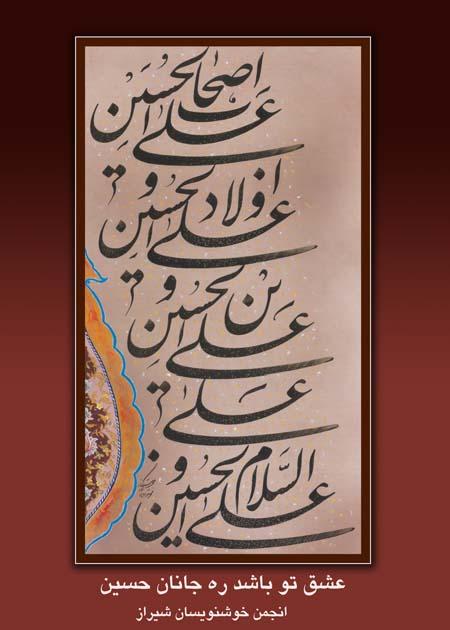 السَّلام علی الحسین و
علی
علی بن الحسین و
علی اولاد الحسین و
علی اصحاب الحسین
عشق تو باشد ره جانان حسین
انجمن خوشنویسان شیراز